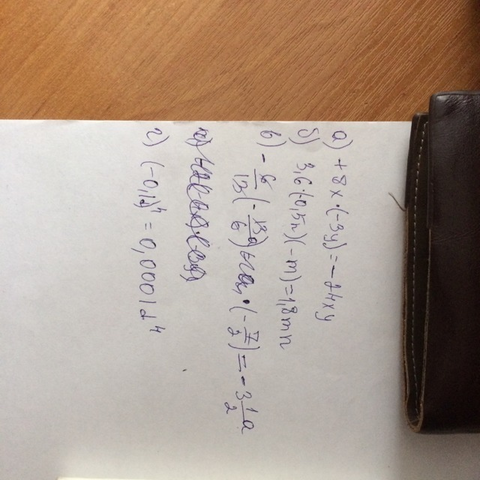 а) +8x·(-3y)=-24xy
б) 3,6·(-0,5n)(-m)=1,8mn
в) -6/13(-13a/6)·(-7/2)=-3 1/2 a
г) (-0,1d)⁴=0,0001d⁴